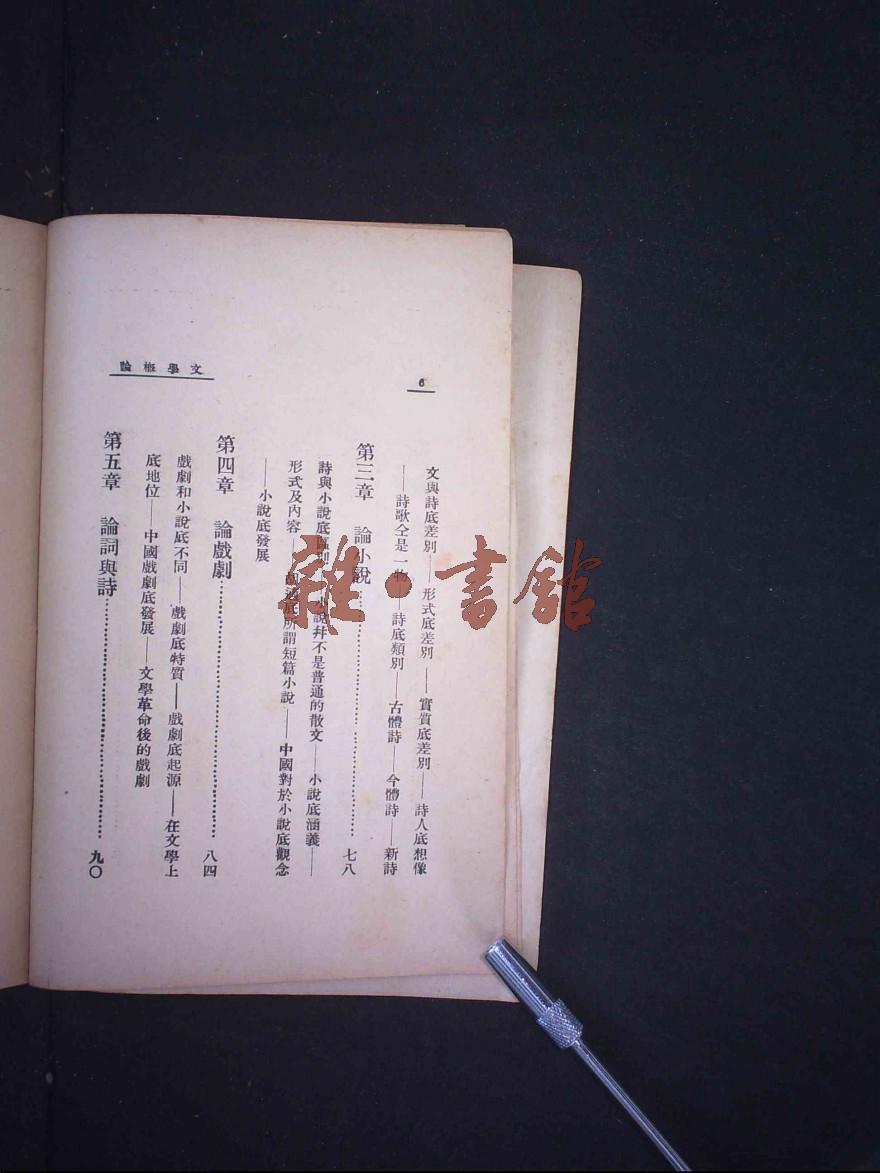 文學概論
6
文與詩底差別——形式底差別——實質底差別——詩人底想像
——詩歌仝是一物——詩底類別——古體詩——今體詩——新詩
第三章　論小說………………七八
詩與小說底區別——小說幷不是普通的散文——小說底涵義——
形式及內容——胡適底所謂短篇小說——中國對於小說底觀念
——小說底發展
第四章　論戲劇………………八四
戲劇和小說底不同——戲劇底特質——戲劇底起源——在文學上
底地位——中國戲劇底發展——文學革命後的戲劇
第五章　論詞與詩………………九〇
雜·書館